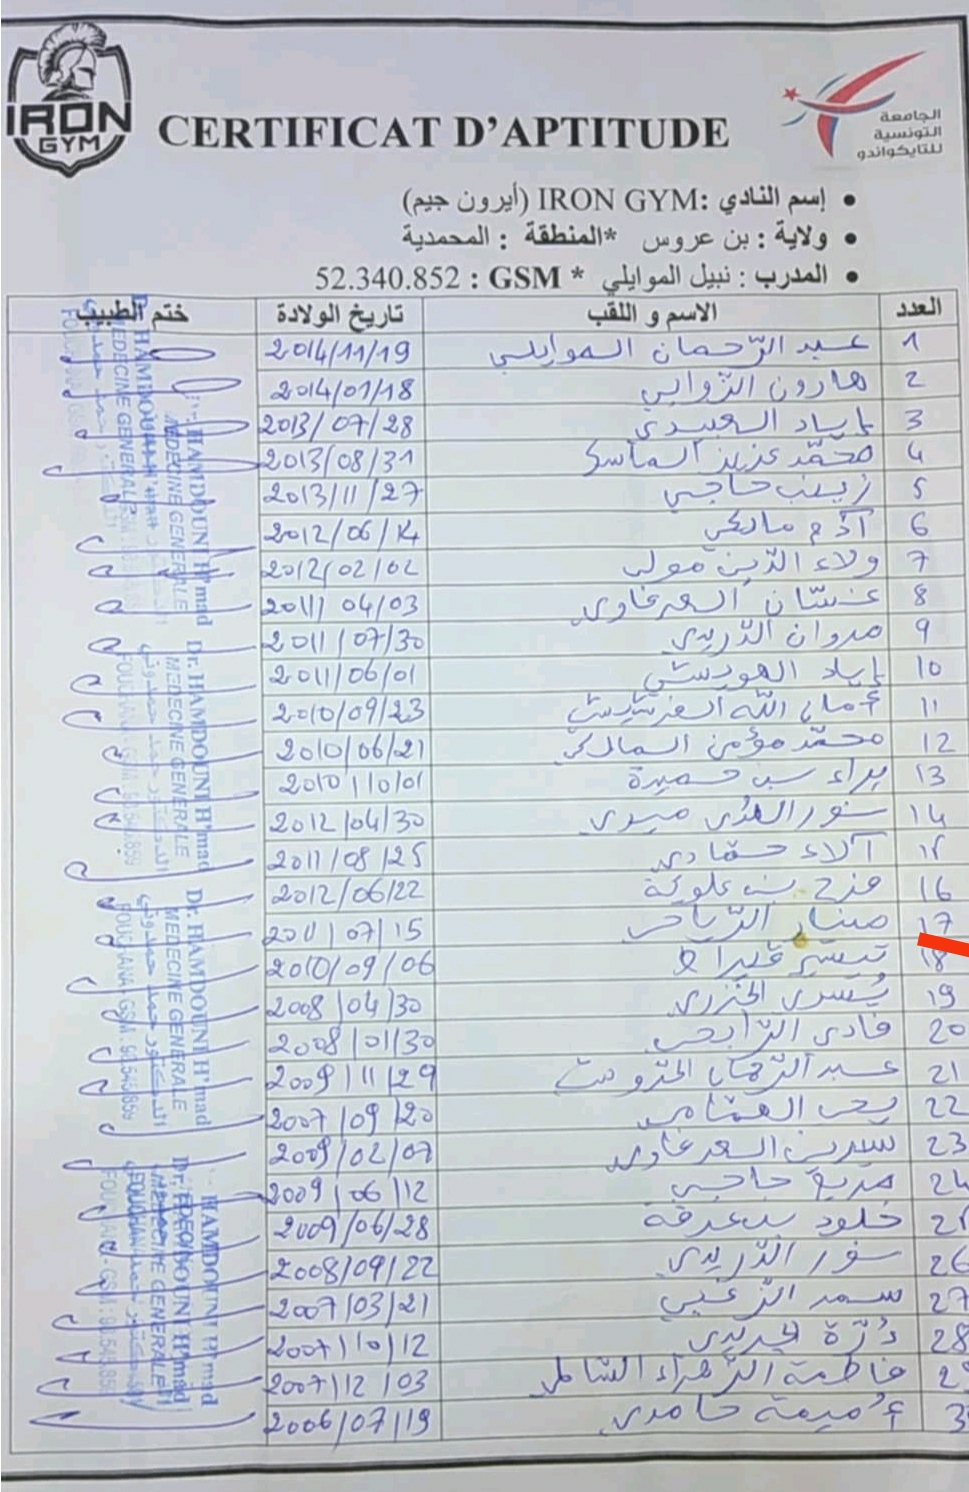 IRON
GYM
CERTIFICAT D'APTITUDE
الجامعة
التونسية
للتايكواندو
• إسم النادي :IRON GYM (أيرون جيم)
• ولاية : بن عروس *المنطقة : المحمدية
• المدرب : نبيل الموايلي * GSM : 52.340.852
العدد الاسم و اللقب تاريخ الولادة ختم الطبيب
1 عبد الرّحمان الموايلي 2014/11/19
2 هارون الزوابي 2014/01/18
3 إياد العبيدي 2013/07/28
4 محمّد عزيز 2013/08/31
5 زينب حاجي 2013/11/27
6 آدم مالكي 2012/06/14
7 ولاء الدّين مولي 2012/02/02
8 غسّان السعرغاوي 2011/04/03
9 مروان الدّريدي 2011/07/30
10 إياد 2011/06/01
11 أمان الله 2010/09/23
12 محمّد مؤمن المالكي 2010/06/21
13 براء بن حميدة 2010/10/01
14 نور الهدى ميدي 2012/04/30
15 آلاء حمّادي 2011/08/25
16 فرح بن علوكة 2012/06/22
17 منار الرّياحي 2011/07/15
18 تيسير قيراط 2010/09/06
19 يُسرى الخزري 2008/04/30
20 فادي الرّابحي 2008/01/30
21 عبد الرّحمان 2009/11/29
22 يحي الهمّامي 2007/09/20
23 سيرين السعرغاوي 2009/02/07
24 مريم حاجي 2009/06/12
25 خلود بن عرفة 2009/06/28
26 نور الدّريدي 2008/09/22
27 سمر الزّغبي 2007/03/21
28 درّة الجريدي 2007/10/12
29 فاطمة الزّهراء الشّاطر 2007/12/03
3 أميمة حامدي 2006/07/19
Dr. HAMDOUNI H'mad
MEDECINE GENERALE
الدكتور حمد حمدوني
FOUCHANA GSM. 98.546.859
Dr. HAMDOUNI H'mad
MEDECINE GENERALE
الدكتور حمد حمدوني
Dr. HAMDOUNI H'mad
MEDECINE GENERALE
الدكتور حمد حمدوني
FOUCHANA GSM. 98.546.859
Dr. HAMDOUNI H'mad
MEDECINE GENERALE